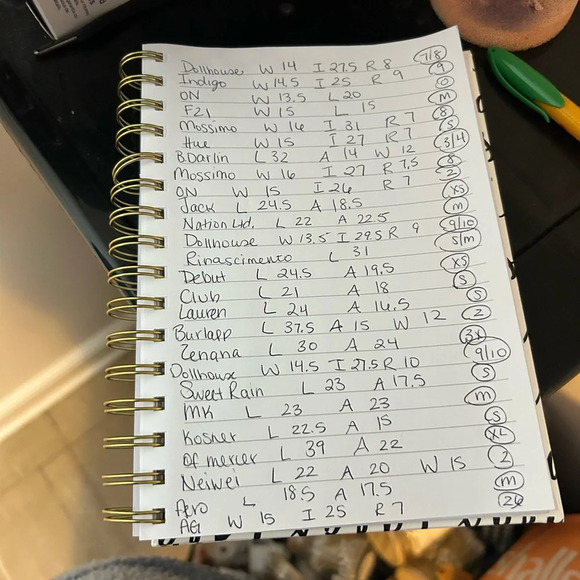 Dollhouse W 14 I 27.5 R 8 7/8
Indigo W 14.5 I 25 R 9 9
ON W 13.5 L 20 0
F21 W 15 L 15 M
Mossimo W 16 I 31 R 7 8
Hue W 15 I 27 R 7 S
B.Darlin L 32 A 14 W 12 3/4
Mossimo W 16 I 27 R 7.5 8
ON W 15 I 26 R 7 2
Jack L 24.5 A 18.5 XS
Nation Ltd. L 22 A 22.5 M
Dollhouse W 13.5 I 29.5 R 9 9/10
Rinascimento L 31 S/M
Debut L 24.5 A 19.5 XS
Club L 21 A 18 S
Lauren L 24 A 16.5 S
Burlapp L 37.5 A 15 W 12 2
Zenana L 30 A 24 3X
Dollhouse W 14.5 I 27.5 R 10 9/10
Sweet Rain L 23 A 17.5 S
MK L 23 A 23 M
Kosher L 22.5 A 15 S
Of mercer L 39 A 22 XL
Neiwei L 22 A 20 W 15 2
Aero L 18.5 A 17.5 M
AG W 15 I 25 R 7 26